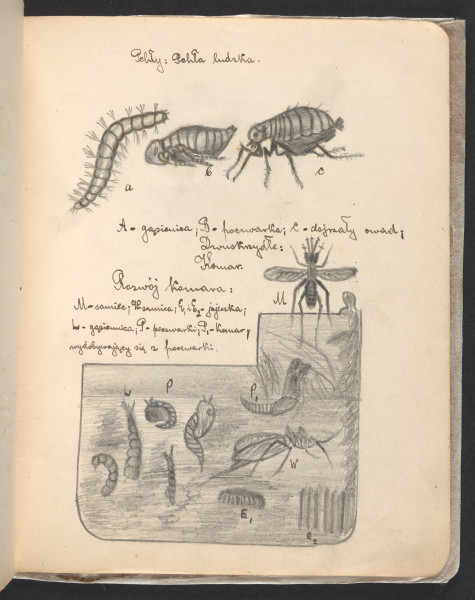 Pchły: Pchła ludzka.
a
b
c
A - gąsienica; B - poczwarka; C - dojrzały owad;
Dwuskrzydłe:
Komar.
Rozwój komara:
M - samiec; W samica; E₁ i E₂ - jajeczka;
L - gąsienica; P - poczwarki; P₁ - komar,
wydobywający się z poczwarki.
M
L
P
P₁
W
E₁
E₂